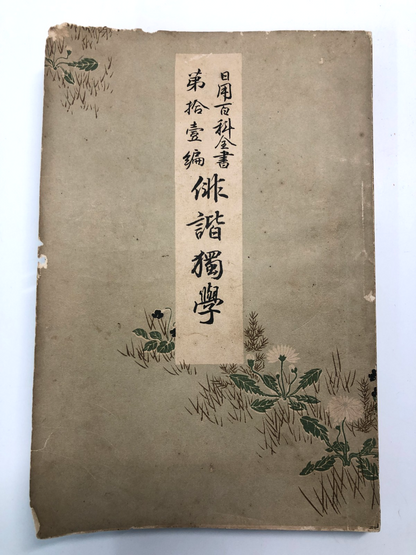 日用百科全書
第拾壹編
俳諧獨學